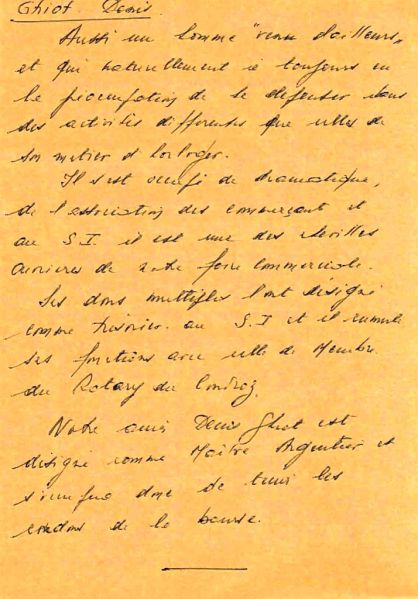 Ghiot Denis
Aussi un homme "venu d'ailleurs"
et qui naturellement a toujours eu
la préoccupation de se dépenser dans
des activités différentes que celles de
son métier d'horloger.
Il s'est occupé de dramatique,
de l'association des commerçant et
au S.I. il est une des chevilles
ouvrières de notre foire commerciale.
Ses dons multiples l'ont désigné
comme trésorier au S.I et il cumule
ses fonctions avec celle de Membre
du Rotary du Condroz.
Notre ami Denis Ghiot est
désigné comme Maître Argentier et
s'occupera donc de tenir les
cordons de la bourse.